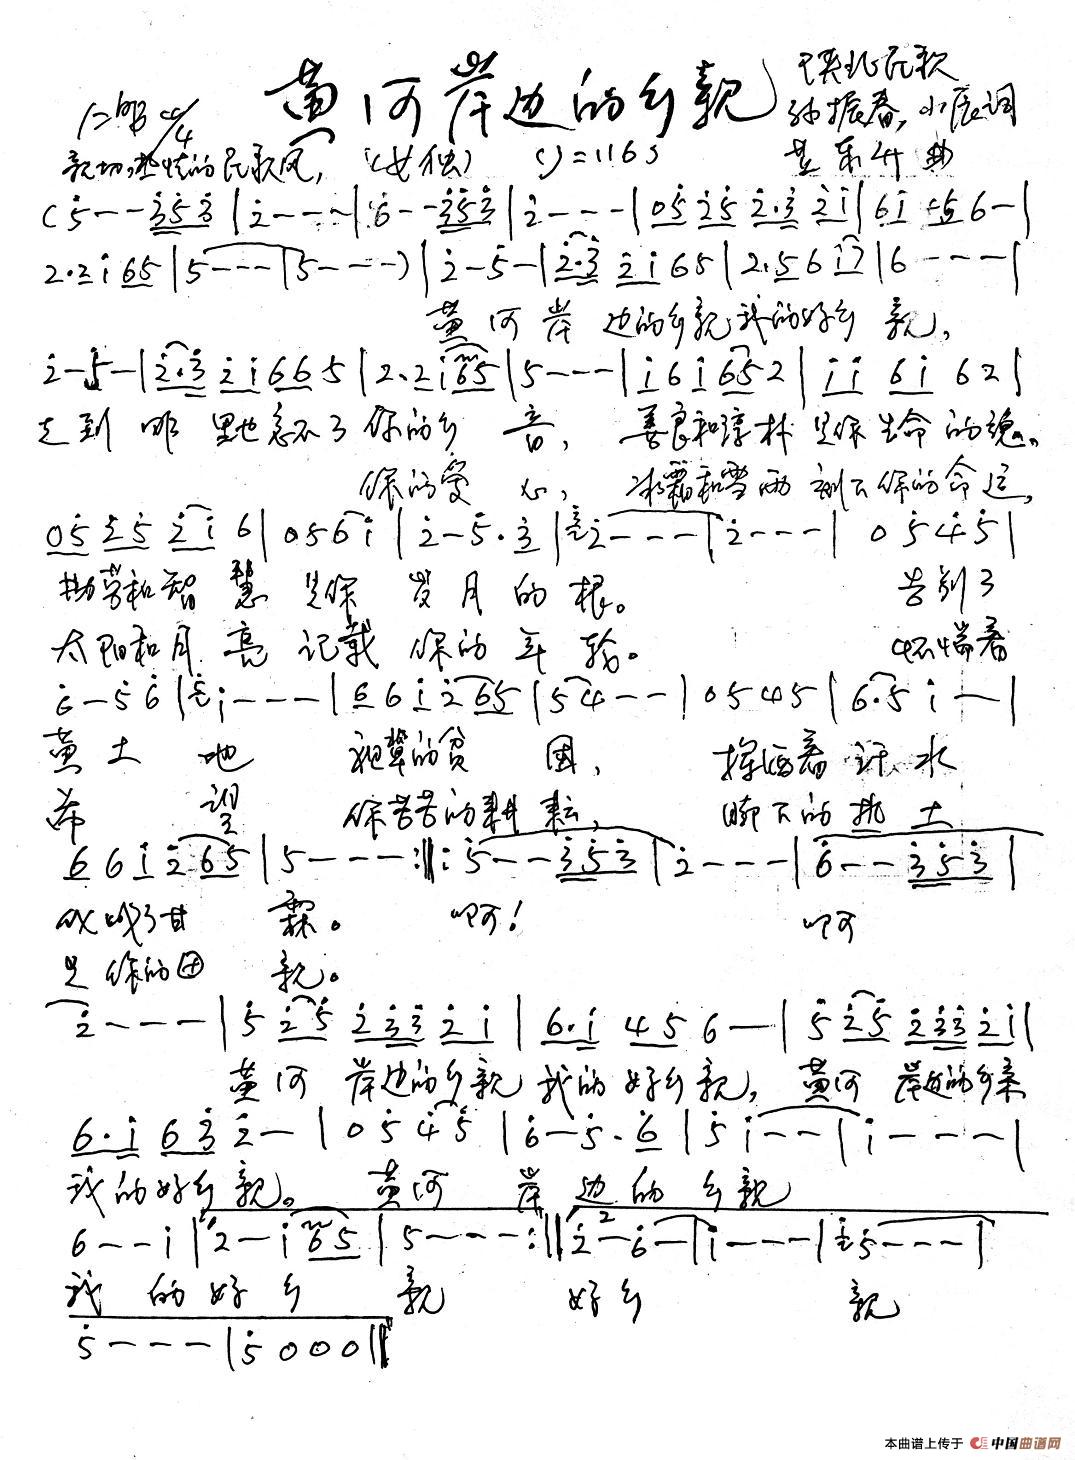 黄河岸边的乡亲
陕北民歌
孙振春,小辰词
1=♭B 4/4
亲切,热忱的民歌风, (女独) ♩=116
曲
(5---353|2---|6---353|2---|05 25 2·3 21|61 56 6-|
2·21 65|5---|5---)|2-5-|2·3 21 65|2·5 6 17|6---|
黄河岸 边的乡亲我的好乡 亲,
2-5-|2·3 21 66 5|2·2165|5---|161652|11 61 62|
走到 哪 里也忘不了 你的乡 音, 善良和淳朴 是你生命的魂。
你的爱 心, 冰霜和雪雨 刻下你的命运,
05 25 21 6|0561|2-5·3|2---|2---|0545|
勤劳和智 慧 是你 岁月的根。 告别了
太阳和月 亮 记载 你的 年 轮。 怀揣着
6-56|1---|661265|54--|0545|6·51-|
黄土 地 祖辈的贫 困, 挥洒着汗水
希 望 你苦苦的耕 耘, 脚下的热土
661265|5---:‖:5--353|2---|6--353|
化成了甘 霖。 啊! 啊
是你的 亲。
2---|5 25 233 21|6·1 45 6-|5 25 233 21|
黄河 岸边的乡亲 我的好乡亲, 黄河 岸边的乡亲
6·1 63 2-|0545|6-5·6|51--|1---|
我的好乡亲。 黄河 岸 边的 乡亲
6--1|2-165|5---:‖2-6-|1---|5---|
我 的好乡 亲 好乡 亲
5---|5000‖
本曲谱上传于 中国曲谱网